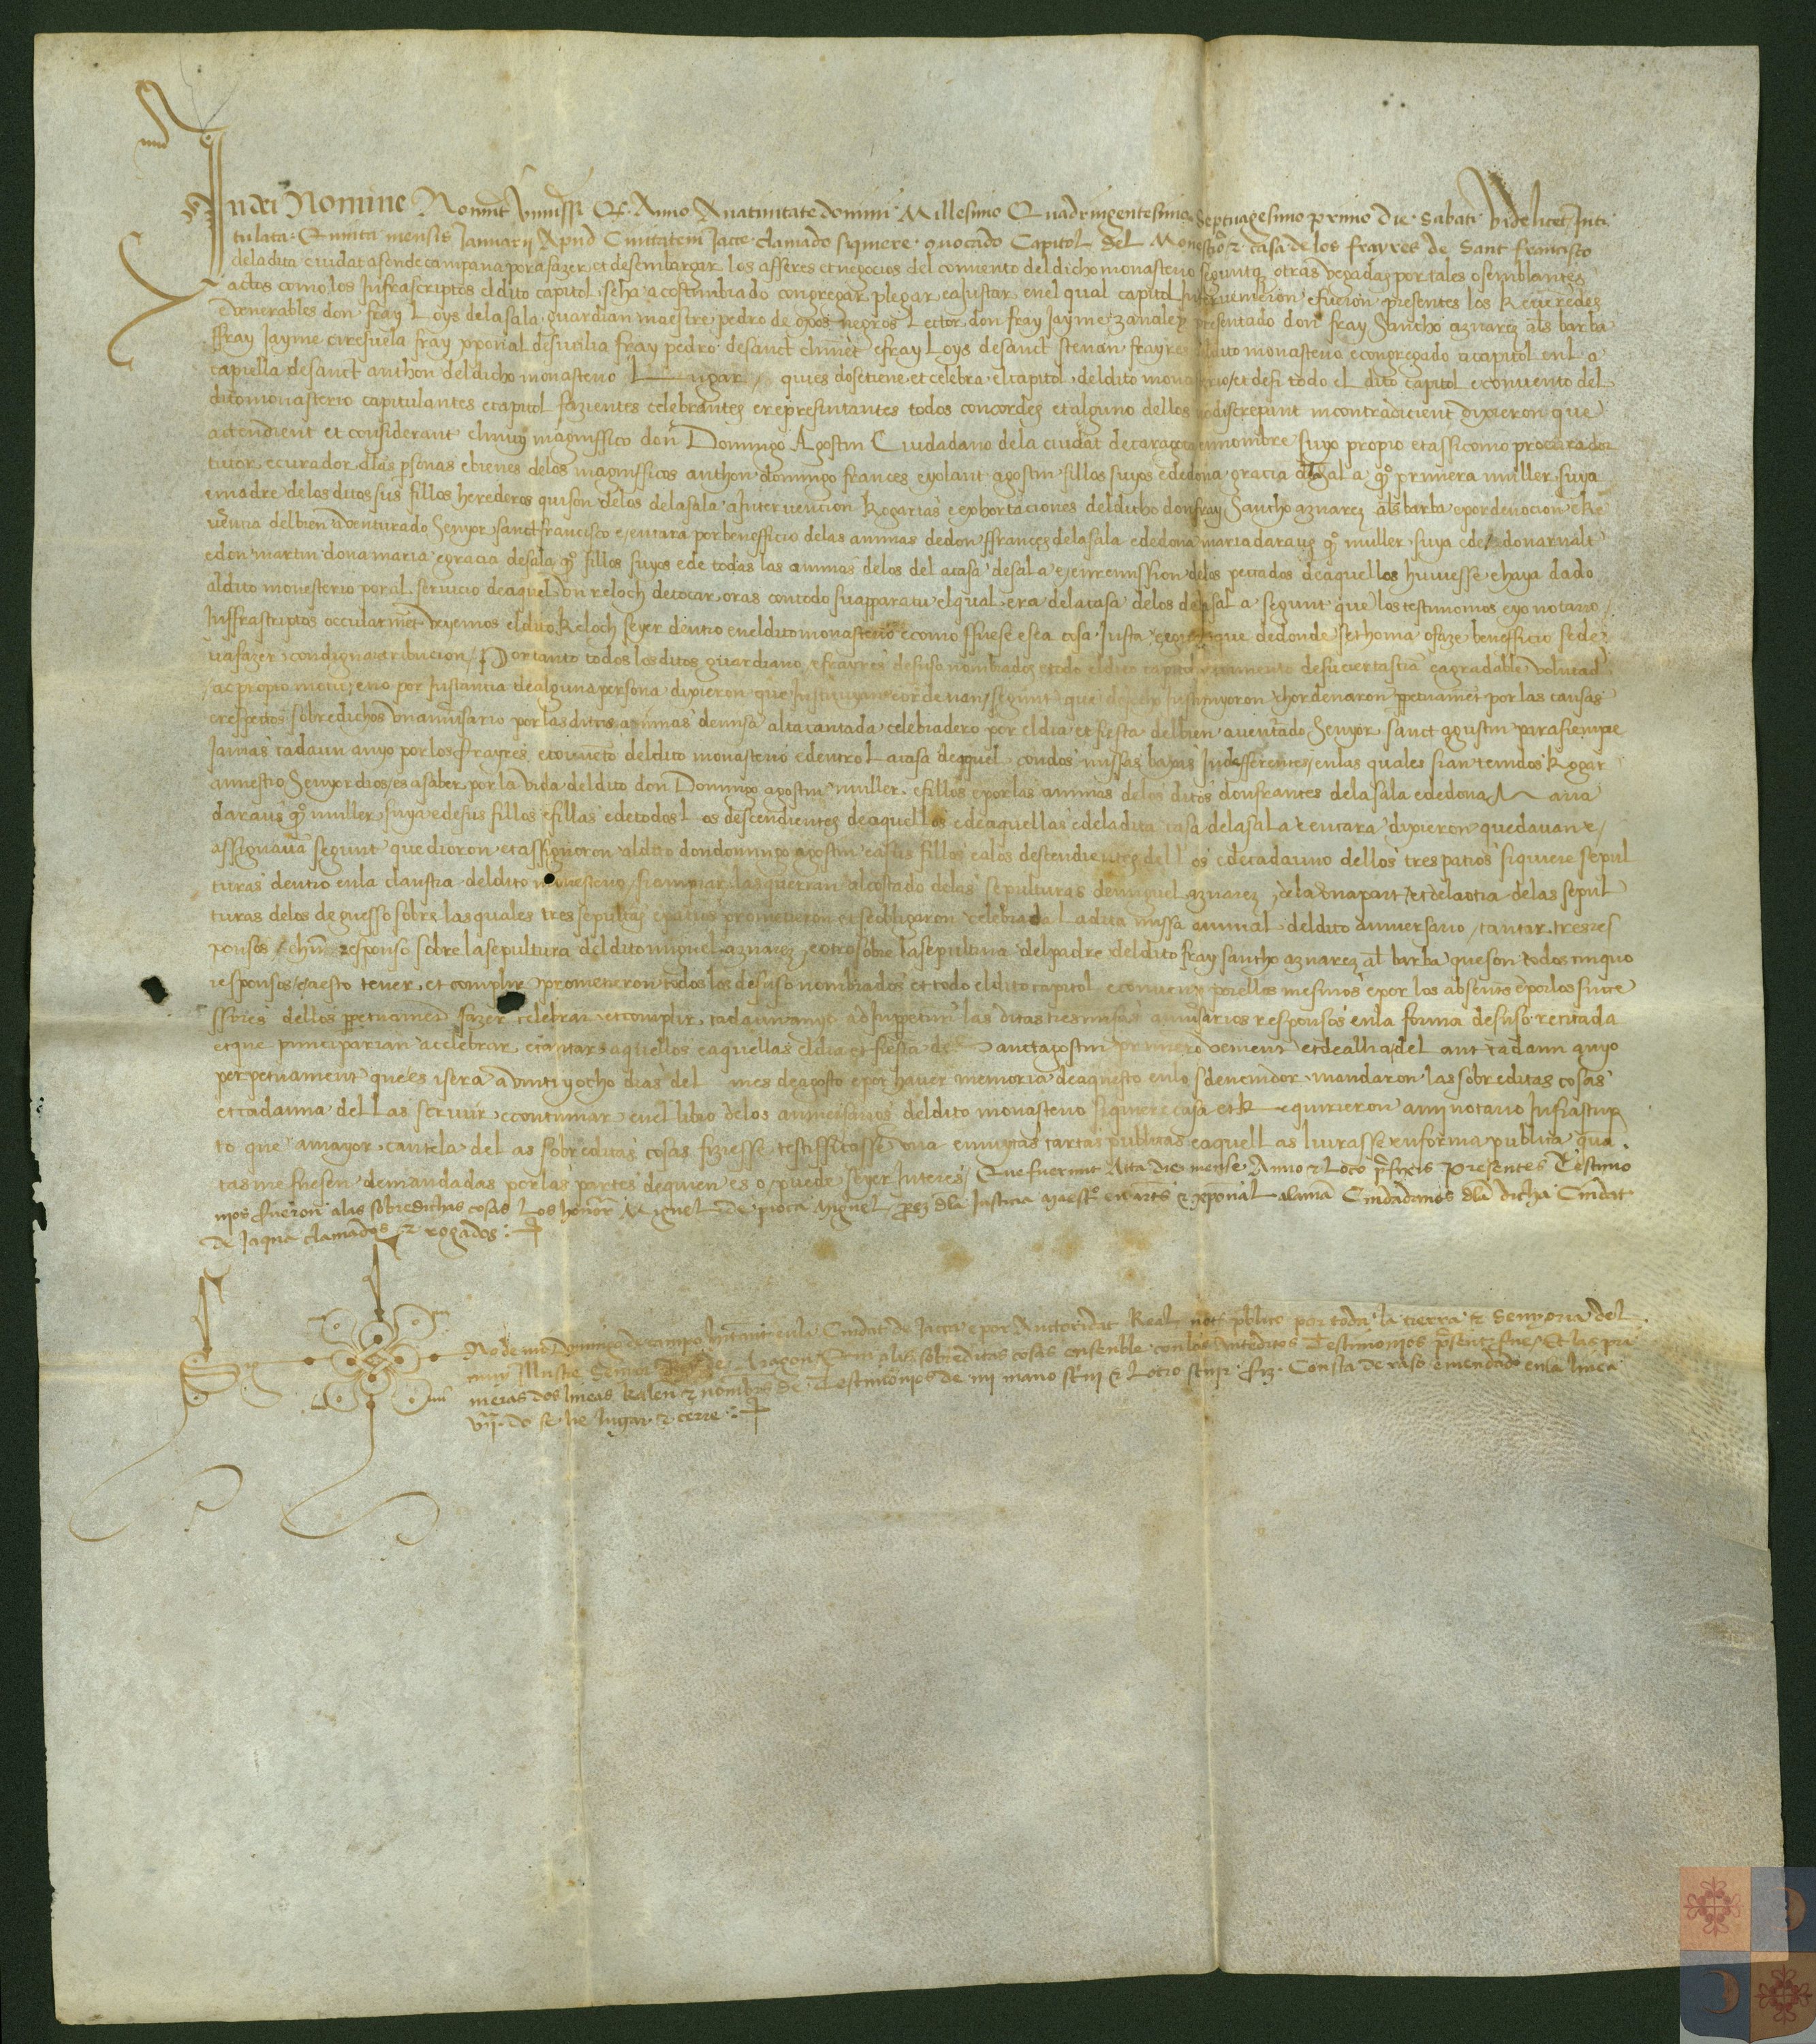 In dei Nomine Noverint Universi Q̃. Anno A nativitate domini Millesimo Quadringentesimo Septuagesimo primo die Sabati Videlicet Inti
tulata Quinta mensis Januarij Apud Civitatem Jacce clamado siquiere quocado Capitol del Monestrio ⁊ casa de los frayres de Sant francisco
dela dita ciudat a son de campana por a fazer et desembargar los afferes et negocios del convento del dicho monasterio segunt q̃ otras vegadas por tales o semblantes
actos como los Infrascriptos el dito capitol se ha acostumbrado congregar plegar e ajustar en el qual capitol Intervenieron e fueron presentes los Reverendes
e venerables don fray Loys dela sala guardian maestre pedro de oxos negros Lector don fray Jayme presentado don fray Sancho aznarez als barba
ffray Jayme ciresuela fray xponal de sivilia fray pedro de sanct climet e fray Loys de sanct stevan frayres del dito monasterio e congregado a capitol en la
capiella de sanct anthon del dicho monasterio Lugar qui es do se tiene et celebra el capitol del dito monasterio et de si todo el dito capitol e convento del
dito monasterio capitulantes e capitol fazientes celebrantes e representantes todos concordes et alguno dellos no discrepant ni contradicient dixieron que
attendient et considerant el muy magniffico don Domingo Agostin Ciudadano dela ciudat de caragoca en nombre suyo propio et assi como procurador
tutor e curador dlas psonas e bienes delos magnifficos anthon domingo frances e yolant agostin fillos suyos e de dona gracia d la sala q̃º primera muller suya
e madre delos ditos sus fillos herederos qui son delos dela sala a Intervencion Rogarias e exhortaciones del dicho don fray Sancho aznarez als barba e por devocion e Re
verencia del bien aventurado Senyor sanct francisco e encara por benefficio delas animas de don ffrances dela sala e de dona maria daraus q̃º muller suya e de don arnalt
e don martin dona maria e gracia de sala q̃º fillos suyos e de todas las animas delos del a casa de sala e en remission delos peccados de aquellos huviesse e haya dado
al dito monesterio por al servicio de aquel un reloch de tocar oras con todo su apparatu el qual era dela casa delos de sala segunt que los testimonios e yo notario
Inffrascriptos occularmet veyemos el dito Reloch seyer dentro en el dito monasterio e como ffuese e sea cosa Justa que de donde se thoma o faze benefficio se de
va fazer condigna retribucion Por tanto todos los ditos guardiano e frayres de suso nombrados et todo el dito capitol e convento de su cierta sciã e agradable voluntad
ac propio motu e no por Instancia de alguna persona dixieron que Instituyan e ordenavan segunt que de fecho Instituyoron e hordenaron ppetuamet por las causas
e respectos sobredichos un anniversario por las ditas animas de missa alta cantada celebradero por el dia et fiesta del bien aventurado Senyor sanct agustin para siempre
Jamas cada un anyo por los frayres e convento del dito monasterio e dentro La casa de aquel con dos missas baxas Indifferentes en las quales sian tenidos Rogar
a nuestro Senyor dios es a saber por la vida del dito don Domingo agostin muller e fillos e por las animas delos ditos don frances dela sala e de dona Maria
daraus q̃º muller suya e de sus fillos e fillas e de todos Los descendientes de aquellos e de aquellas e dela dita casa dela sala e encara dixieron que davan e
assignavã segunt que dioron et assignoron al dito don domingo agostin e a sus fillos e a los descendientes dellos e de cada uno dellos tres patios siquiere sepul
turas dentro en la claustra del dito monesterio las querran al costado delas sepulturas de miguel aznarez dela una part et dela otra delas sepul
turas delos de guesso sobre las quales tres sepulturas e patios prometieron et se obligaron celebrada La dita missa annual del dito anniversario cantar tres res
ponsos e hũ responso sobre la sepultura del dito miguel aznarez e otro sobre la sepultura del padre del dito fray sancho aznarez al barba que son todos cinquo
responsos e a esto tener et complir prometieron todos los de suso nombrados et todo el dito capitol e convento por ellos mesmos e por los absentes e por los succe
ssores dellos ppetuament fazer celebrar et complir cada un anyo ad Imppetuũ las ditas tres missas anniversarios responsos en la forma de suso recitada
et que principarian a celebrar e cantar aquellos e aquellas el dia et fiesta de Sanct agostin primero venient et de alli adel ant cada un anyo
perpetuament que es e sera a vint y ocho dias del mes de agosto e por haver memoria de aquesto en lo sdevenidor mandaron las sobreditas cosas
et cada una dellas scrivir e continuar en el libro delos aniversarios del dito monasterio siquiere casa et Requirieron a mi notario Infrascrip
to que a mayor cautela delas sobreditas cosas fiziesse testifficasse una e muytas cartas publicas e aquellas livrasse en forma publica quã
tas me fuesen demandadas por las partes de quien es o puede seyer Interes Que fuerunt Acta die mense Anno ⁊ Loco p̃fixis Presentes Testimo
nios fueron alas sobredichas cosas Los honor̃ Miguel De xioca Miguel p̃ez dla Justicia maestr̃º en arts ⁊ xponal alaman Ciudadanos dla dicha Ciudat
De Jaqua clamados ⁊ rogados
No de mi Domingo de campo hitant en la Ciudat de Jacca e por Auctoridat Real not pblico por toda la tierra ⁊ Senyoria del
muy Illustre Senyor Rey de Aragon Qui alas sobreditas cosas ensemble con los anteditos Testimonios p̃sent fue Et las pri
meras dos lineas Kalen ⁊ nombres de Testimonios de mi mano scriu ⁊ Lotro scriur fiz. Consta de raso emendado en la linea
VII. do se lie lugar ⁊ cerre